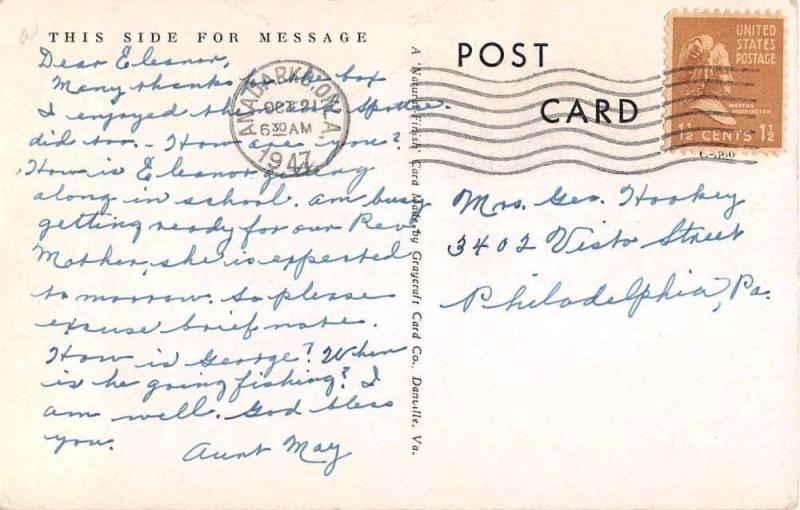 THIS SIDE FOR MESSAGE
Dear Eleanor,
Many thanks for the box
I enjoyed the
did too. - How are you?
How is Eleanor going
along in school. am busy
getting ready for our Rev.
Mother, she is expected
tomorrow. So please
excuse brief note.
How is George? When
is he going fishing? I
am well. God bless
you.
Aunt May
ANADARKO, OKLA.
OCT 21
6 30 AM
1947
A 'Natural Finish' Card Made by Graycraft Card Co., Danville, Va.
POST
CARD
UNITED
STATES
POSTAGE
MARTHA
WASHINGTON
1½ CENTS 1½
Mrs. Geo. Hookey
3402 Vista Street
Philadelphia, Pa.